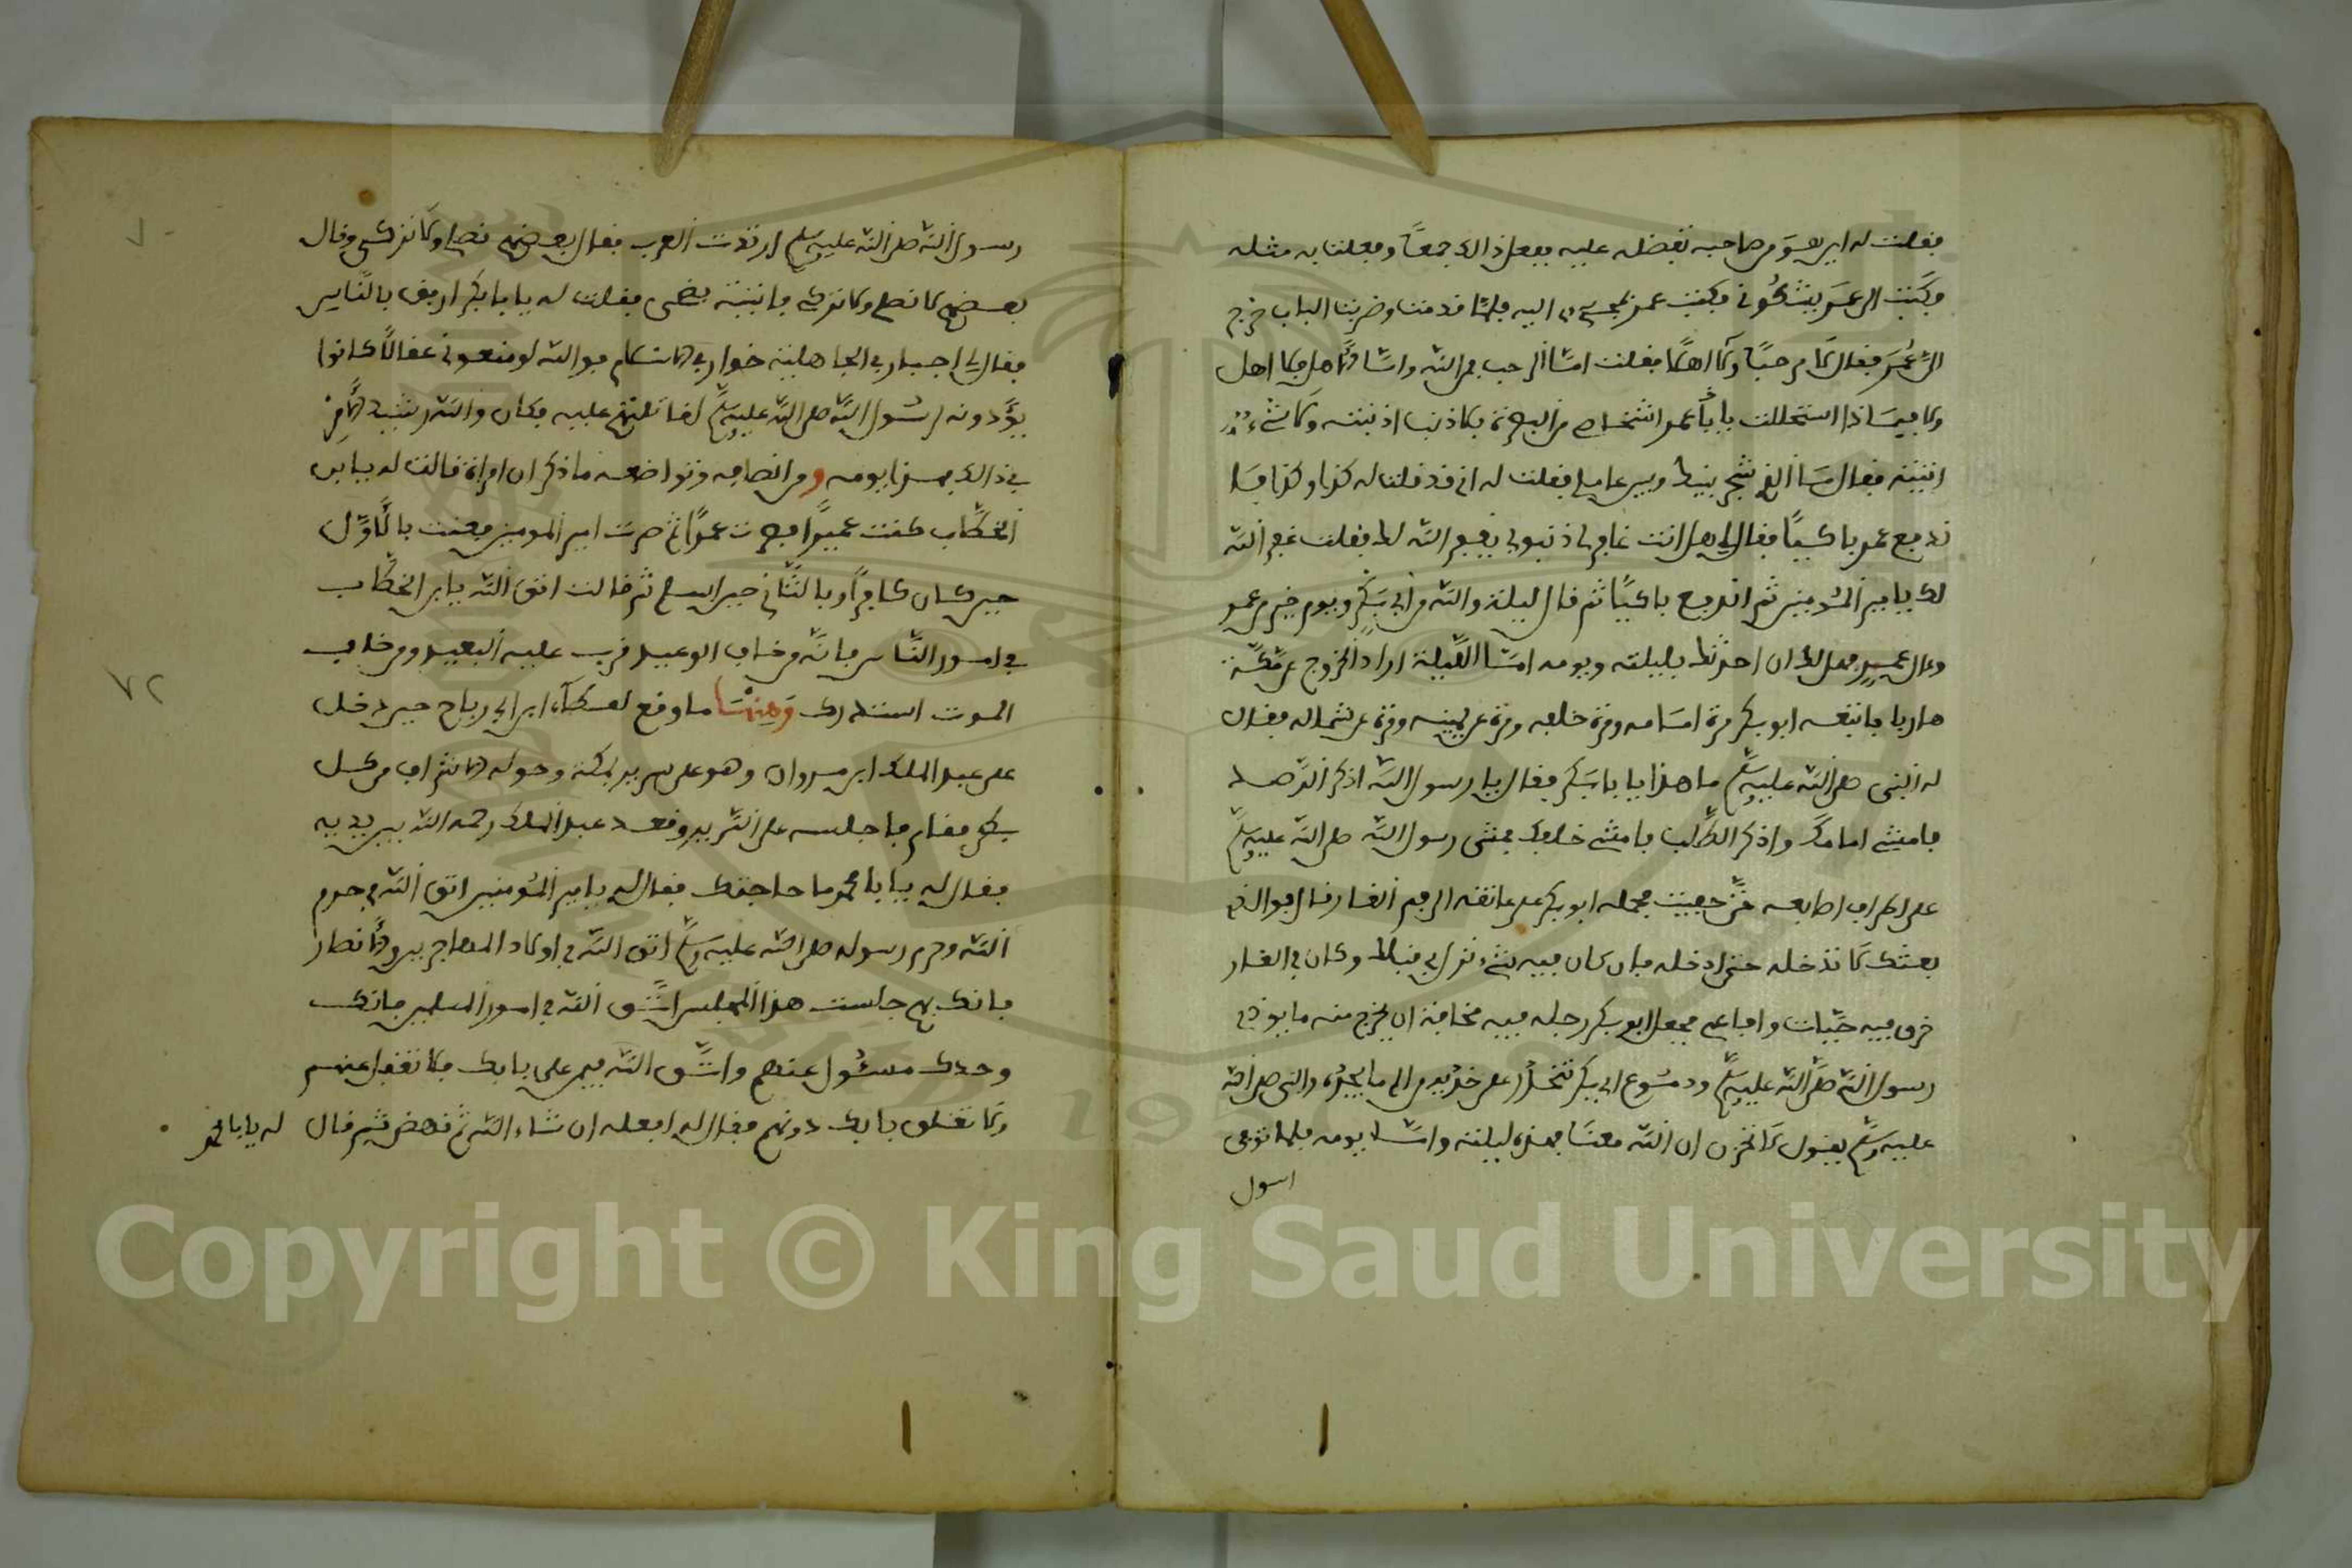 فقلت له اين هو من صاحبه تفضله عليه ففعل ذالك جمعًا وفعلنا به مثله
فكتب الى عمر يشكوني فكتب عمر الي اليه فلما قدمت وضربت الباب خرج
الي عمر فقال لا مرحبًا ولا اهلًا فقلت امّا الرحب فمن الله وامّا الاهل فلا اهل
ولا فبماذا استحللت يا عمر اشخاصي من البصرة بلا ذنب اذنبته ولا شيء
اتيته فقال ما الذي شجر بينك وبين عاملي فقلت له اني قد قلت له كذا وكذا
فدمع عمر باكيًا فقال لي هل انت غافر لي ذنبي يغفر الله لك فقلت غفر الله
لك يا امير المؤمنين ثم اندفع باكيًا ثم قال ليلة والله من ابي بكر ويوم خير من عمر
وءال عمر فهل لك ان احدثك بليلته ويومه امّا الليلة اراد الخروج من مكة
هاربا فاتبعه ابو بكر مرة امامه ومرة خلفه ومرة عن يمينه ومرة عن شماله فقال
له النبي صلى الله عليه وسلم ما هذا يا ابا بكر فقال يا رسول الله اذكر الرصد
فامشي امامك واذكر الطلب فامشي خلفك فمشى رسول الله صلى الله عليه وسلم
على اطراف اصابعه حتى حفيت فحمله ابو بكر على عاتقه الى فم الغار وقال فوالذي
بعثك لا تدخله حتى ادخله فان كان فيه شيء نزل بي قبلك وكان في الغار
خرق فيه حيّات وافاعي فجعل ابو بكر رجله فيه مخافة ان يخرج منه ما يوذي
رسول الله صلى الله عليه وسلم ودموع ابي بكر تتحدّر على خديه من الم ما يجده والنبي صلى الله
عليه وسلم يقول لا تحزن ان الله معنا فهذه ليلته وامّا يومه فلما توفي
رسول
رسول الله صلى الله عليه وسلم ارتدّت العرب فقال بعضهم نصلي ولا نزكي وقال
بعضهم لا نصلي ولا نزكي فاتيته فقلت له يا ابا بكر ارفق بالناس
فقال لي اجبار في الجاهلية خوار في الاسلام فوالله لو منعوني عقالًا كانوا
يؤدونه لرسول الله صلى الله عليه وسلم لقاتلتهم عليه فكان والله رشيد الامر
في ذالك فهذا يومه ومن انصافه وتواضعه ما ذكر ان امراة قالت له يا ابن
الخطّاب كنت عميرًا فصرت عمرًا ثم صرت امير المومنين فعنت بالاول
حين كان كافرًا وبالثاني حين اسلم ثم قالت اتق الله يا ابن الخطاب
في امور الناس فانّه من خاف الوعيد قرب عليه البعيد ومن خاف
الموت استدرك ومنها ما وقع لعطاء ابن ابي رباح حين دخل
على عبد الملك ابن مروان وهو على سرير بمكة وحوله الاشراف من كل
بطن فقام فاجلسه على السرير وقعد عبد الملك رحمه الله بين يديه
فقال له يا ابا محمد ما حاجتك فقال له يا امير المؤمنين اتق الله في حرم
الله وحرم رسوله صلى الله عليه وسلم اتق الله في اولاد المهاجرين والانصار
فانك بهم جلست هذا المجلس اتّق الله في امور المسلمين فانك
وحدك مسئول عنهم واتّق الله فيمن على بابك فلا تغفل عنهم
ولا تغلق بابك دونهم فقال له افعله ان شاء الله ثم نهض ثم قال له يا ابا محمد
٧٢
Copyright © King Saud University